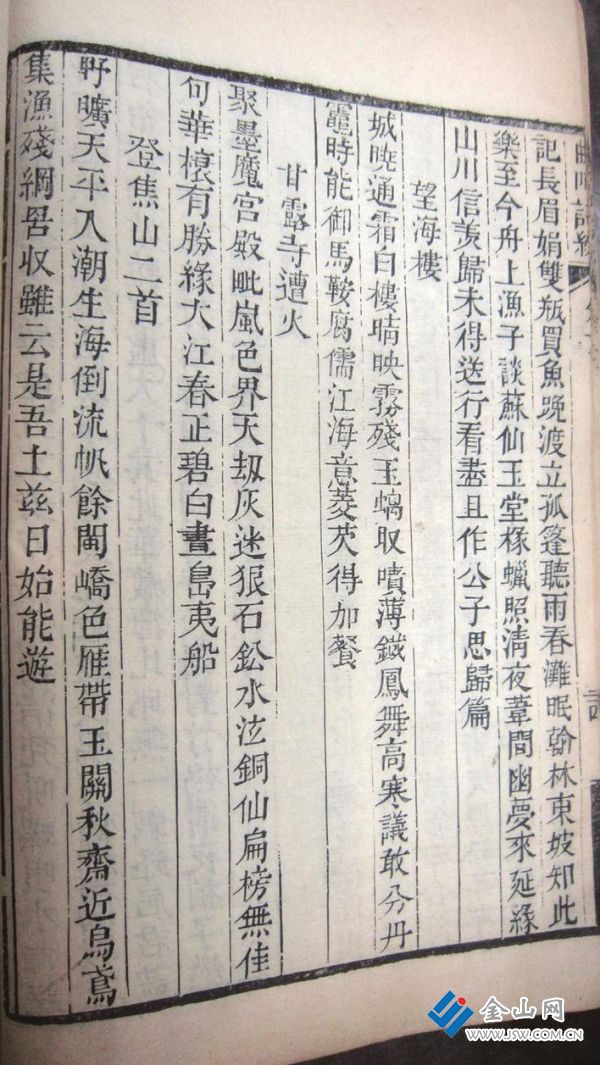 記長眉娟雙瓶買魚晚渡立孤篷聽雨春灘眠翰林東坡知此
樂至今舟上漁子談蘇仙玉堂椽蠟照清夜葦間幽夢來延緣
山川信羙歸未得送行看盡且作公子思歸篇
望海樓
城曉通霜白樓晴映霧殘玉螭取噴薄鐵鳳舞高寒議敢分丹
竈時能御馬鞍腐儒江海意菱芡得加餐
甘露寺遭火
聚墨魔宮殿毗嵐色界天劫灰迷狠石鈆水泫銅仙扁榜無佳
句華榱有勝緣大江春正碧白晝島夷船
登焦山二首
野曠天平入潮生海倒流帆餘閩嶠色雁帶玉關秋齋近烏鳶
集漁殘網罟収雖云是吾土兹日始能遊
金山网
www.JSW.COM.CN